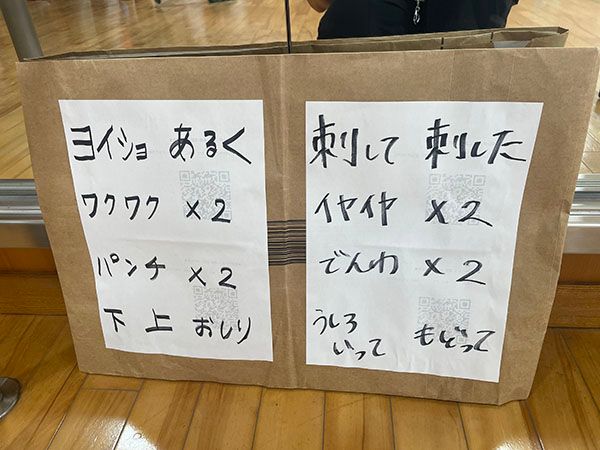 ヨイショ あるく
ワクワク ×2
パンチ ×2
下 上 おしり
刺して 刺した
イヤイヤ ×2
でんわ ×2
うしろ
いって もどって